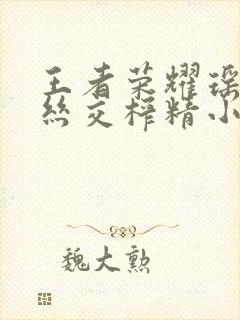 王者荣耀瑶
丝交榨精小
魏大勲